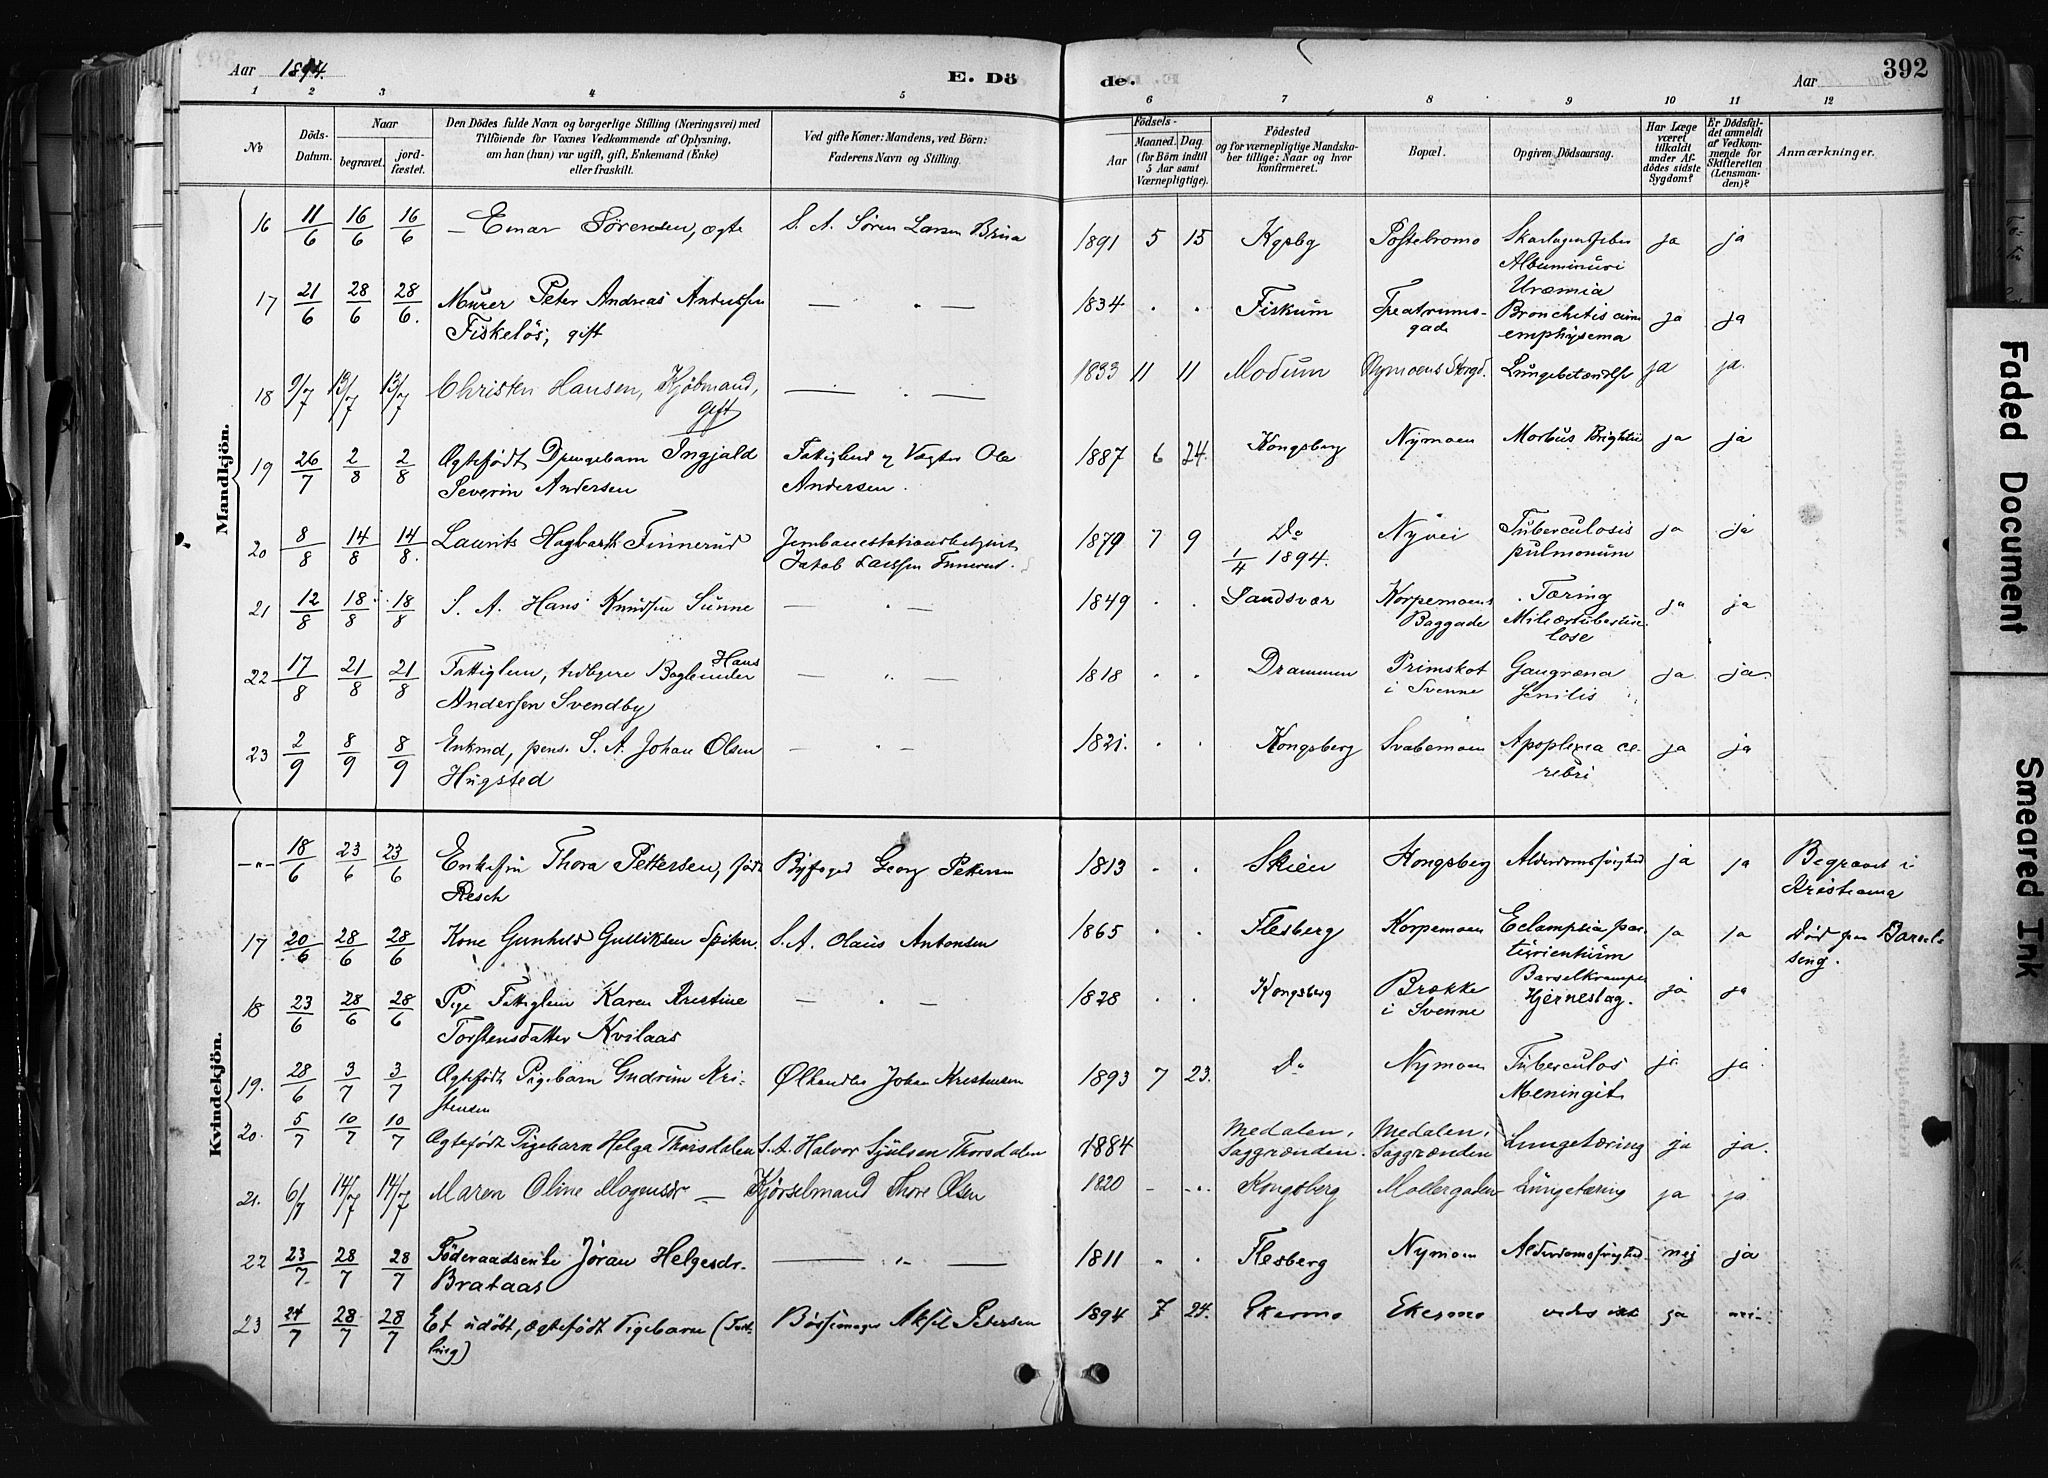 Aar 1894. E. Dö de. Aar 392
1 2 3 4 5 6 7 8 9 10 11 12
No
Döds-Datum.
Naar
begravet.
jord-fæstet.
Den Dödes fulde Navn og borgerlige Stilling (Næringsvei) med
Tilföiende for Voxnes Vedkommende af Oplysning,
om han (hun) var ugift, gift, Enkemand (Enke)
eller fraskilt.
Ved gifte Koner: Mandens, ved Börn:
Faderens Navn og Stilling.
Födsels-
Aar
Maaned. Dag.
(for Börn indtil
5 Aar samt
Værnepligtige).
Födested
og for værnepligtige Mandska-
ber tillige: Naar og hvor
konfirmeret.
Bopæl.
Opgiven Dödsaarsag.
Har Læge
været
tilkaldt
under Af-
dödes sidste
Sygdom?
Er Dödsfal-
det anmeldt
af Vedkom-
mende for
Skifteretten
(Lensman-
den)?
Anmærkninger.
Mandkjön.
16 11/6 16/6 16/6 – Einar Sörensen, ægte S. A. Sören Larsen 1891 5 15 Kgsbg Skarlagensfeber ja ja
Albuminuri
Uræmia
17 21/6 28/6 28/6. Murer Peter Andreas Anderssen — " — 1834 . . Fiskum Theatrums- Bronchitis cum ja ja
Fiskelös, gift gade emphysema
18 9/7 13/7 13/7 Christen Hansen, Kjöbmand, — . — 1833 11 11 Modum Nymoens Storgd. Lungebetændelse ja ja.
gift
19 26/7 2/8 2/8 Ægtefödt Drengebarn Ingjald Fattiglem og Vægter Ole 1887 6 24. Kongsberg Nymoen Morbus Brightii ja ja
Severin Andersen Andersen.
20 8/8 14/8 14/8. Laurits Hagbarth Finnerud Jernbanestationsbetjent 1879 7 9 Do Nyvei Tuberculosis ja ja
Jakob Larssen Finnerud. 1/4 1894. pulmonum
21 12/8 18/8 18/8 S. A. Hans Knudsen Sunne — " — 1849 . . Sandsvær Korpemoens Tæring ja ja
Baggade Miliærtubercu-
lose
22 17/8 21/8 21/8 Fattiglem, tidligere Bogbinder Hans — " — 1818 . . Drammen Primskot Gangræna ja ja.
Andersen Svendby i Svenne senilis
23 2/9 8/9 8/9 Enkmd, pens. S. A. Johan Olsen — " — 1821. . . Kongsberg Svabemoen Apoplexia ce- ja ja
Hugsted rebri
Kvindekjön.
—"— 18/6 23/6 23/6 Enkefru Thora Pettersen, født Byfoged Georg Petersen 1813 . . Skien Kongsberg Alderdomssvaghed ja ja Begravet i
Resch Kristiania
17 20/6 28/6 28/6 Kone Gunhild Gulliksen Spiten S. A. Olaus Antonsen 1865 . . Flesberg Korpemoen Eclampsia par- ja ja Död paa Barsel-
turientium seng.
Barselkrampe
18 23/6 28/6 28/6 Pige Fattiglem Karen Kristine — " — 1828 . . Kongsberg Brække Hjerneslag. ja ja
Torstensdatter Kvilaas i Svenne
19. 28/6 3/7 3/7 Ægtefödt Pigebarn Gudrun Kri- Ølhandler Johan Kristensen 1893 7 23. Do Nymoen Tuberculos ja ja
stensen Meningit
20. 5/7 10/7 10/7 Ægtefödt Pigebarn Helga Thorsdalen S. A. Halvor Sjulsen Thorsdalen 1884 Medalen, Medalen, Lungetæring ja ja.
Saggrænden. Saggrænden
21. 6/7 14/7 14/7 Maren Oline Mogensdr — Kjörselmand Thore Olsen 1820 – . . Kongsberg Møllergaden Lungetæring ja ja
22 23/7. 28/7 28/7 Föderaadsenke Jöran Helgesdr. — " — 1811 . . Flesberg Nymoen Alderdomssvaghed nej ja
Brataas
23 24/7 28/7 28/7 Et udöbt, ægtefödt Pigebarn (Tvil- Bössemager Aksel Petersen 1894 7 24. Ekermo Ekermo vides ikke ja nei
ling)
Faded Document
Smeared Ink